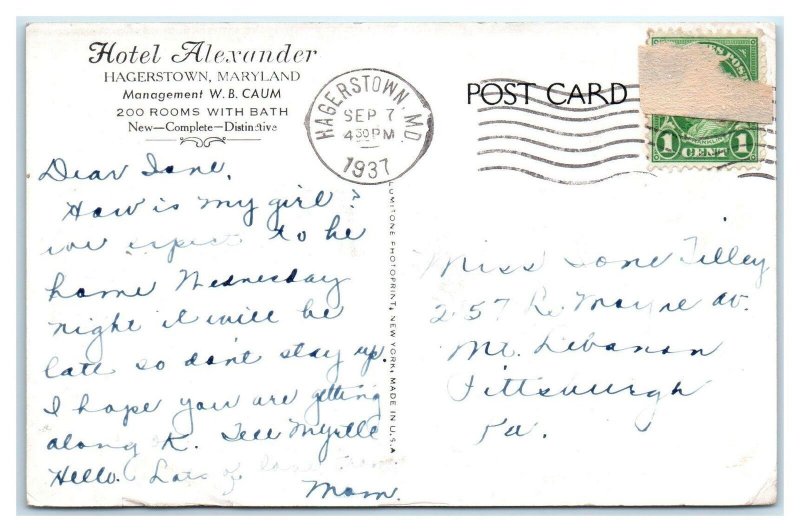 Hotel Alexander
HAGERSTOWN, MARYLAND
Management W. B. CAUM
200 ROOMS WITH BATH
New—Complete—Distinctive
HAGERSTOWN, MD
SEP 7
4 30 PM
1937
POST CARD
1 CENT 1
Dear Ione,
How is my girl?
we expect to be
home Wednesday
night it will be
late so dont stay up.
I hope you are getting
along K. Tell Myrtle
Hello. Lots of love from
Mom.
LUMITONE PHOTOPRINT, NEW YORK, MADE IN U.S.A
Miss Ione Tilley
257 Mayne av.
Mt. Lebanon
Pittsburgh
Pa.